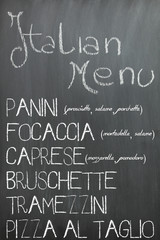 Italian
Menu
PANINI (prosciutto, salame, porchetta)
FOCACCIA (mortadella, salame)
CAPRESE (mozzarella, pomodoro)
BRUSCHETTE
TRAMEZZINI
PIZZA AL TAGLIO